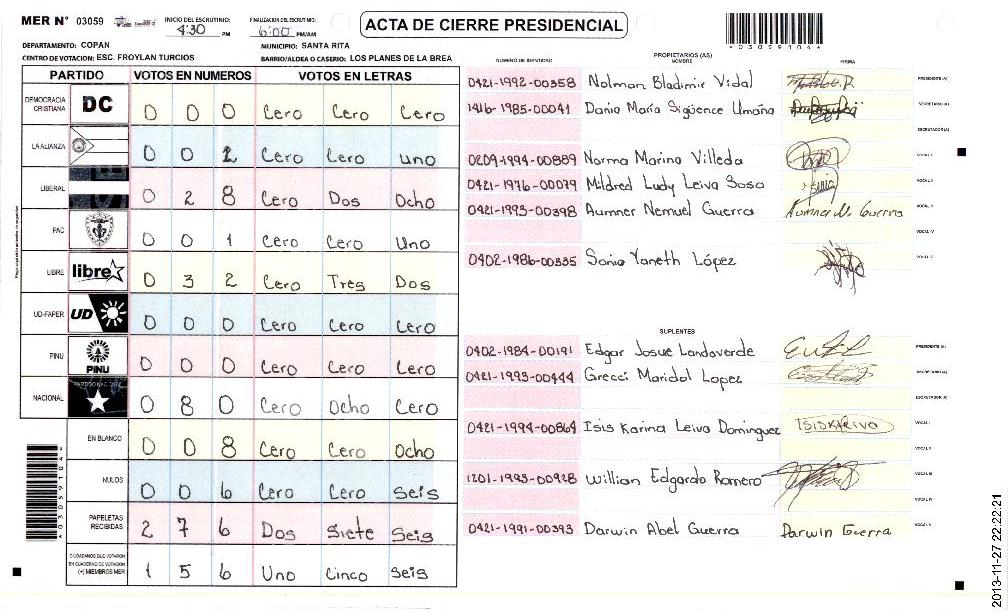 MER N° 03059
INICIO DEL ESCRUTINIO: 4:30 PM
FINALIZACION DEL ESCRUTINIO: 6:00 PM/AM
ACTA DE CIERRE PRESIDENCIAL
DEPARTAMENTO: COPAN
MUNICIPIO: SANTA RITA
CENTRO DE VOTACION: ESC. FROYLAN TURCIOS
BARRIO/ALDEA O CASERIO: LOS PLANES DE LA BREA
PARTIDO VOTOS EN NUMEROS VOTOS EN LETRAS
DEMOCRACIA CRISTIANA DC 0 0 0 Cero Cero Cero
LA ALIANZA 0 0 1 Cero Cero uno
LIBERAL 0 2 8 Cero Dos Ocho
PAC 0 0 1 Cero Cero Uno
LIBRE libre 0 3 2 Cero Tres Dos
UD-FAPER UD 0 0 0 Cero Cero Cero
PINU PINU 0 0 0 Cero Cero Cero
NACIONAL PARTIDO NACIONAL 0 8 0 Cero Ocho Cero
EN BLANCO 0 0 8 Cero Cero Ocho
NULOS 0 0 6 Cero Cero Seis
PAPELETAS RECIBIDAS 2 7 6 Dos Siete Seis
CIUDADANOS QUE VOTARON EN CUADERNO DE VOTACION (+) MIEMBROS MER 1 5 6 Uno Cinco Seis
PROPIETARIOS (AS)
NUMERO DE IDENTIDAD NOMBRE FIRMA
0421-1992-00358 Nolman Bladimir Vidal PRESIDENTE (A)
1416-1985-00041 Dania María Sigüence Umaña SECRETARIO (A)
ESCRUTADOR (A)
0209-1994-00889 Norma Marina Villeda VOCAL I
0421-1976-00079 Mildred Ludy Leiva Sosa VOCAL II
0421-1993-00398 Aumner Nemuel Guerra VOCAL III
VOCAL IV
0402-1986-00335 Sonia Yaneth López VOCAL V
SUPLENTES
0402-1984-00191 Edgar Josue Landaverde PRESIDENTE (A)
0421-1993-00444 Grecci Maridol Lopez SECRETARIO (A)
ESCRUTADOR (A)
0421-1994-00864 Isis Karina Leiva Dominguez VOCAL I
VOCAL II
1201-1993-00928 Willian Edgardo Romero VOCAL III
VOCAL IV
0421-1991-00393 Darwin Abel Guerra Darwin Guerra VOCAL V
2013-11-27 22:22:21